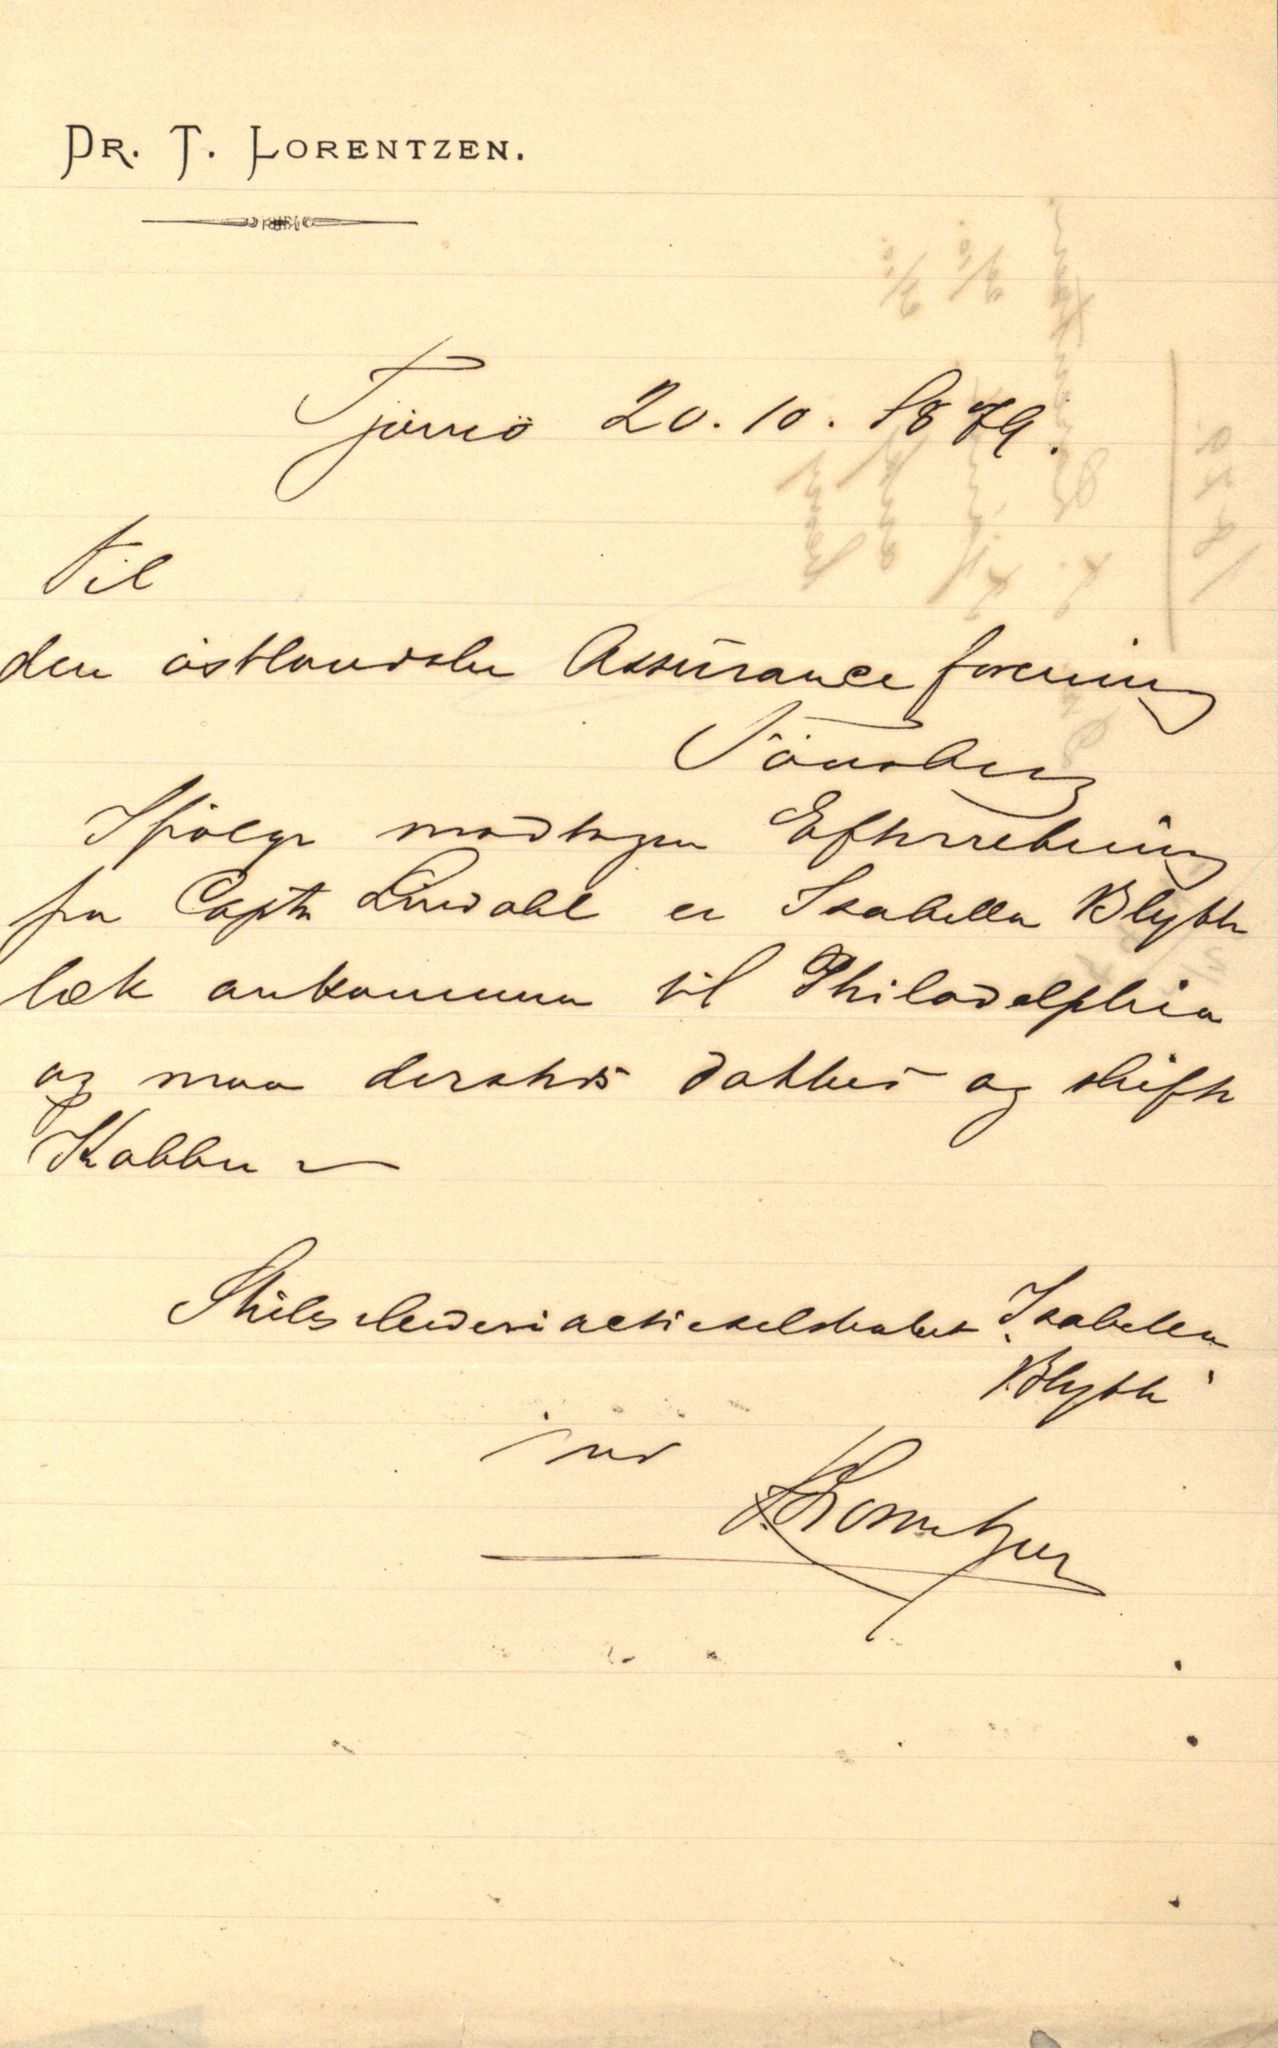 DR. T. LORENTZEN.
Tjømø 20.10.1879.
Til
den østlandske Assurance forening
Tønsberg
Ifølge modtagen Efterretning
fra Captn Lindahl er Isabella Blyth
læk ankommen til Philadelphia
og maa dersteds dokkes og skifte
Kobber
Skibsrederiactieselskabet "Isabella
Blyth"
ved
T. Lorentzen